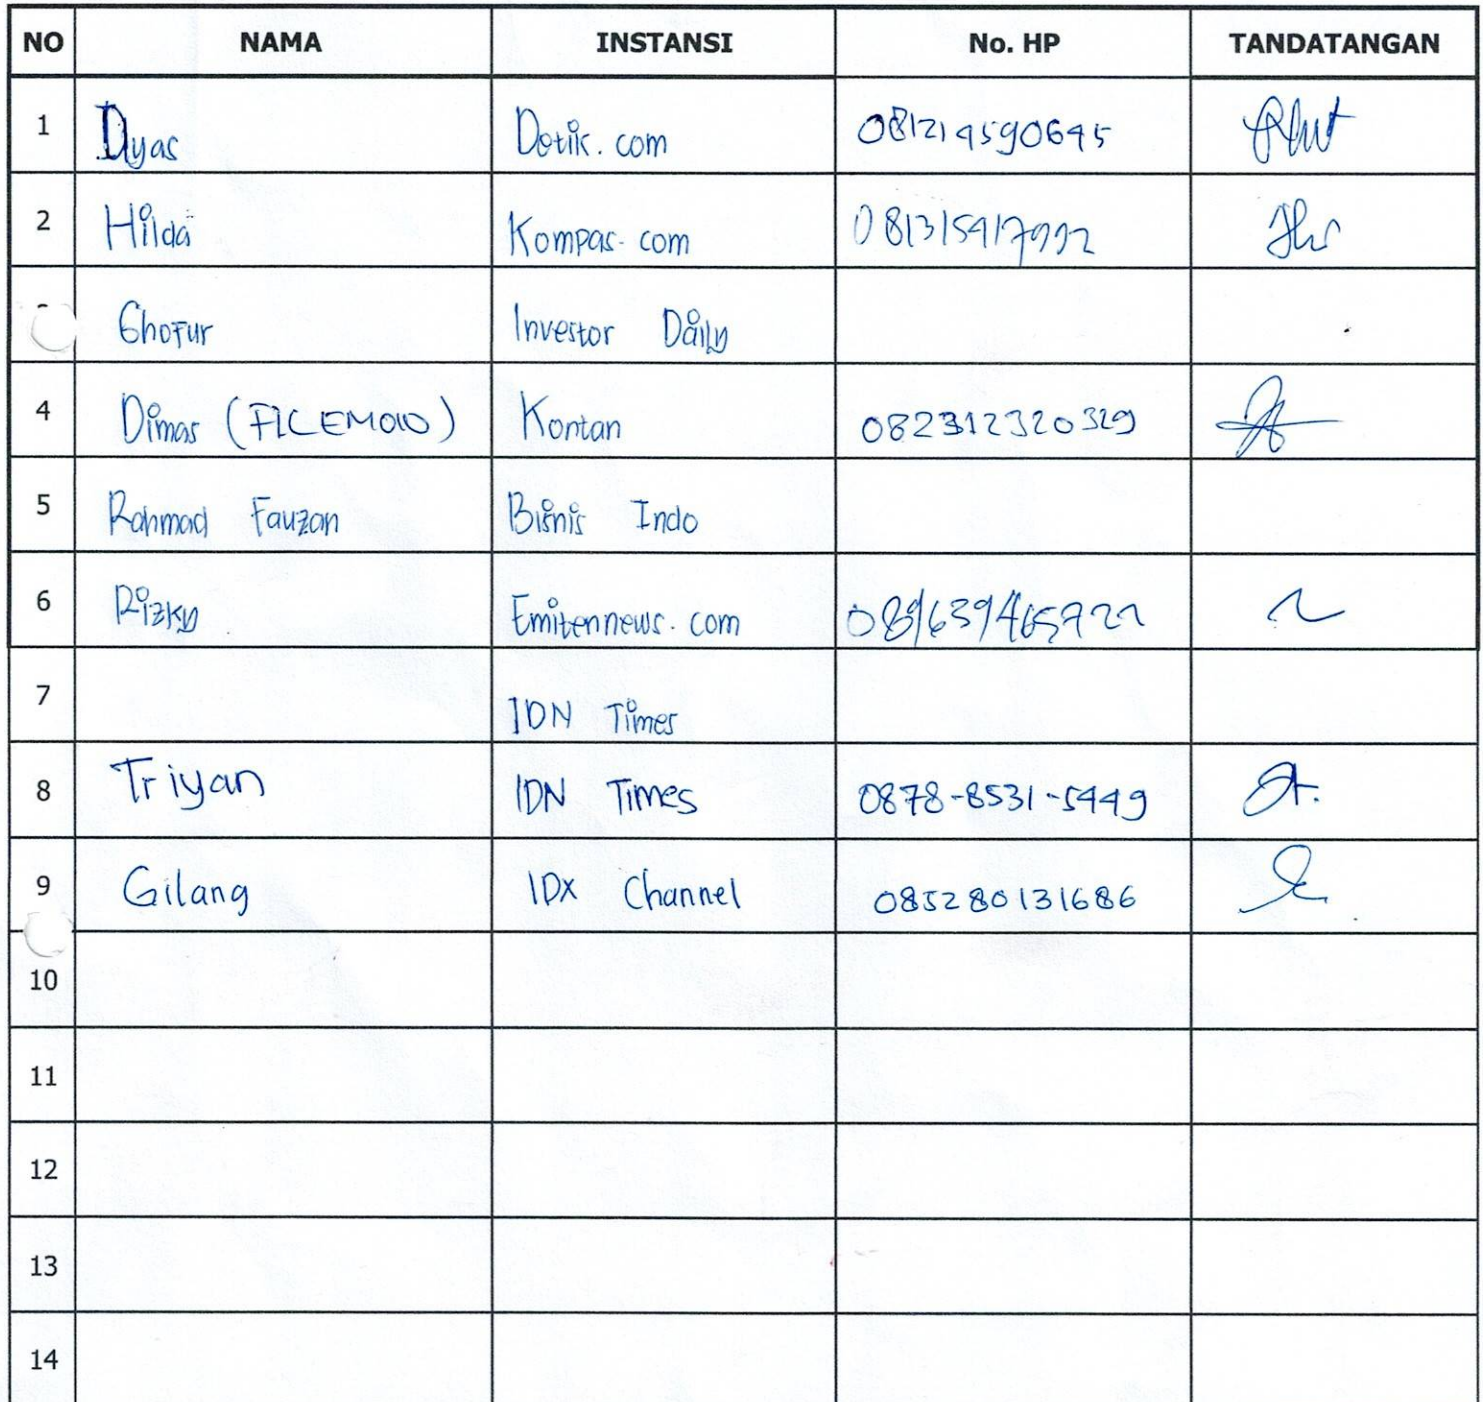 NO NAMA INSTANSI No. HP TANDATANGAN
1 Dyas Detik.com 081214590645
2 Hilda Kompas.com 081315417992
Ghofur Investor Daily
4 Dimas Kontan 082312320329
5 Rahmad Fauzan Bisnis Indo
6 Rizky Emitennews.com 089639465722
7 IDN Times
8 Triyan IDN Times 0878-8531-5449
9 Gilang IDX Channel 085280131686
10
11
12
13
14